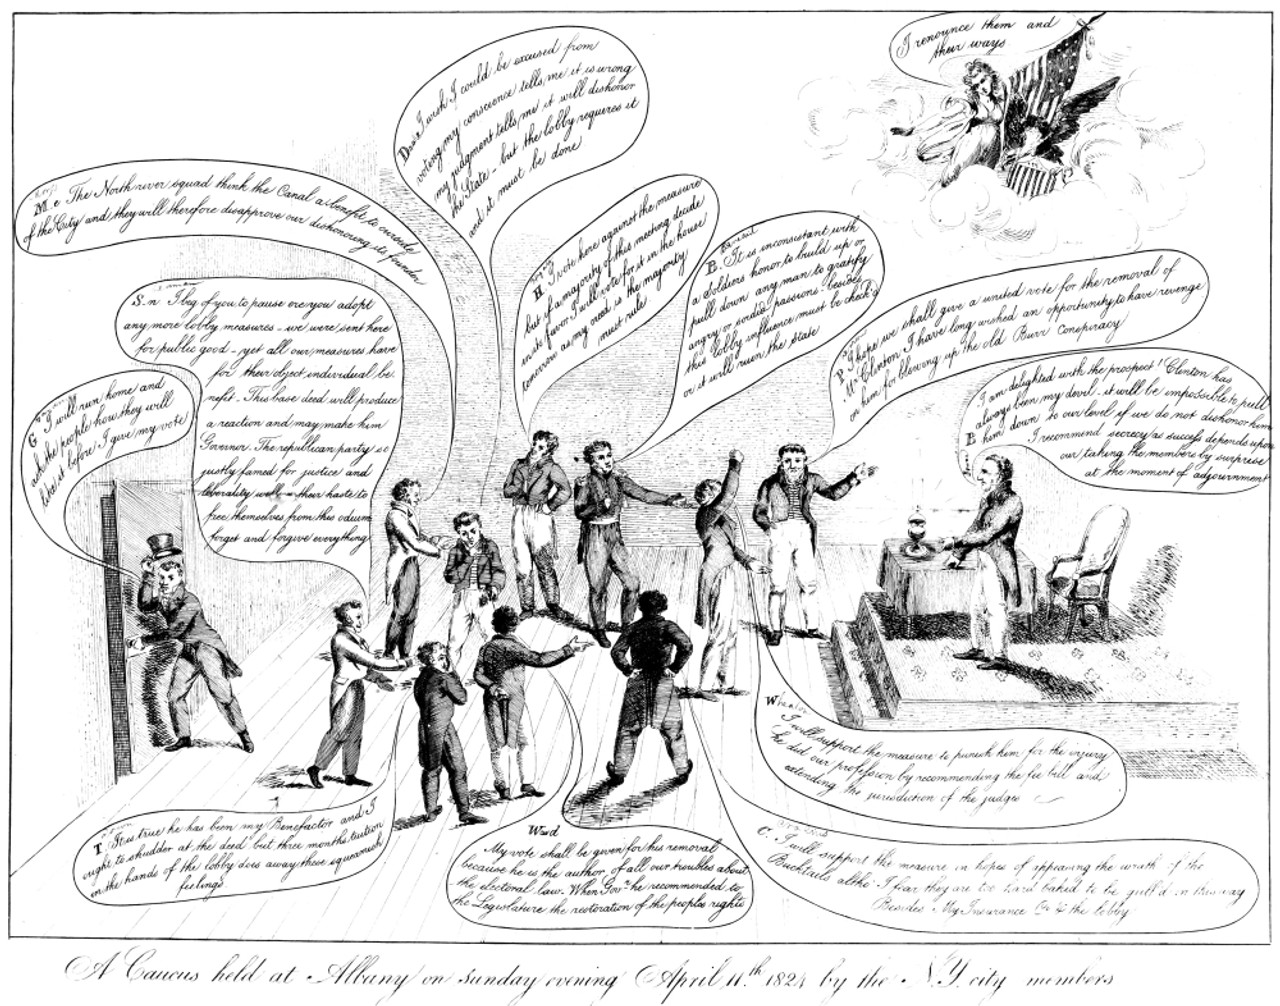 I renounce them and
their ways
Dear I wish I could be excused from
voting my conscience tells me it is wrong
my judgment tells me it will dishonor
the State - but the lobby requeres it
and it must be done
M e The North river squad think the Canal a benefit to outside
of the City and they will therefore disapprove our dishonoring its founder
H I vote here against the measure
but if a majority of this meeting decide
in its favor I will vote for it in the house
tomorrow as my creed is the majority
must rule
B. It is inconsistant with
a Soldiers honor to build up or
pull down any man to gratify
angry or sordid passions - besides
this lobby influence must be check'd
or it will ruin the State
S.n I beg of you to pause ere you adopt
any more lobby measures - we were sent here
for public good - yet all our measures have
for their object individual be.
nefit - This base deed will produce
a reaction and may make him
Governor. The republican party so
justly famed for justice and
leberality will in their haste to
free themselves from this odium
forget and forgive everything
P. I hope we shall give a united vote for the removal of
Mr. Clinton I have long wished an opportunity to have revenge
on him for blowing up the old Burr Conspiracy
I am delighted with the prospect! Clinton has
always been my devil - it will be impossible to pull
B him down to our level if we do not dishonor him
I recommend secrecy as success depends upon
our taking the members by surprise
at the moment of adjournment
G I will run home and
ask the people how they will
like it before I give my vote
Wheaton
I will support the measure to punish him for the injury
he did our profession by recommending the fee bill and
extending the jurisdiction of the judges
T It is true he has been my Benefactor and I
ought to shudder at the deed but three months tuition
in the hands of the lobby does away these squeamish
feelings
Wood
My vote shall be given for his removal
because he is the author of all our troubles about
the electoral law. When Govr. he recommended to
the Legislature the restoration of the peoples rights
C. I will support the measure in hopes of appeasing the wrath of the
Bucktails altho' I fear they are too hard baked to be gull'd in this way
Besides My Insurance Co & the lobby
A Caucus held at Albany on Sunday evening April 11.th 1824 by the N.Y. city members